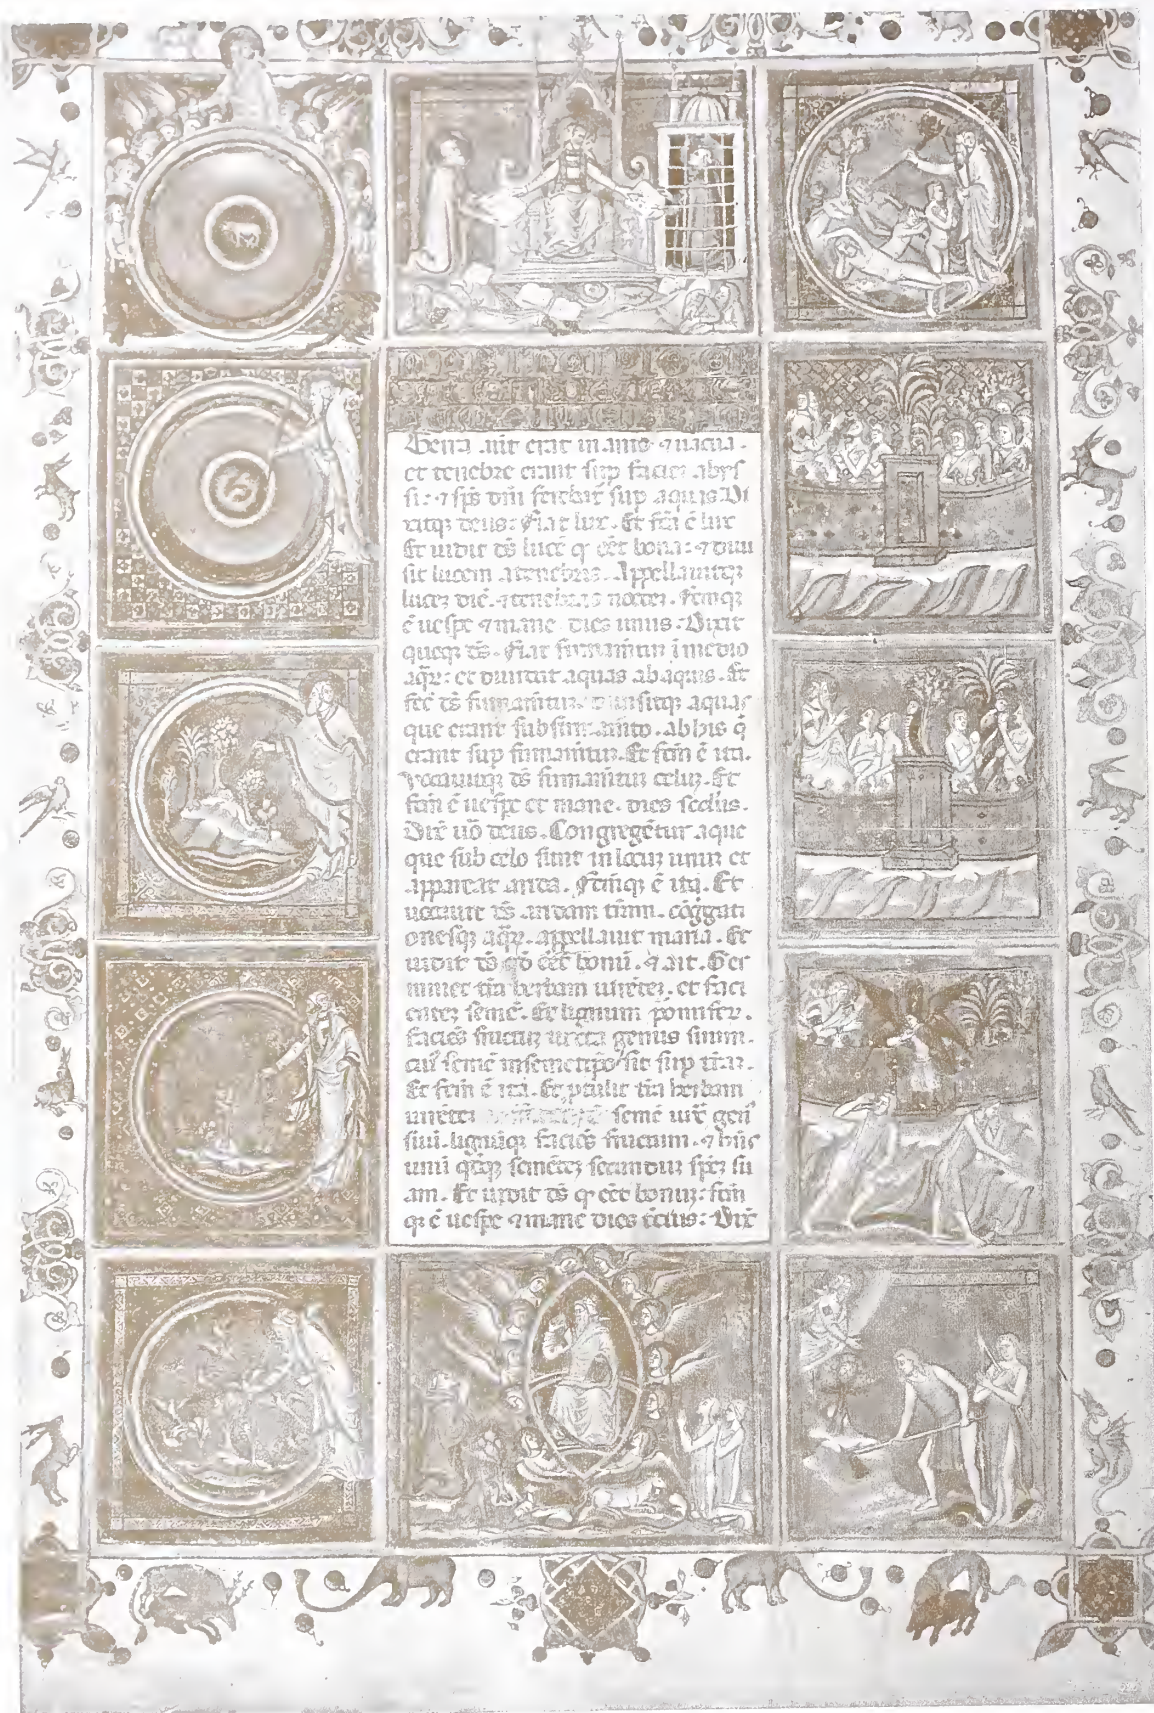 Terra aut̄ erat inanis ⁊ uacua.
et tenebre erant sup faciē abys
si: ⁊ sp̄s dn̄i ferebat̄ sup aquas Di
xitqꝫ deus: Fiat lux. Et fc̄a ē lux
Et uidit dс̄ lucē qꝫ eēt bona: ⁊ diui
sit lucem a tenebris. Appellauitqꝫ
lucē diē. ⁊ tenebras noctē. Fc̄mqꝫ
ē uesp̄e ⁊ mane. dies unus: Dixit
quoqꝫ ds̄. Fiat firmam̄tū ī medio
aqꝝ: et diuidat aquas ab aquis. Et
fec̄ ds̄ firmam̄tū. diuisitqꝫ aquas
que erant sub firmam̄to. ab his q̄
erant sup firmam̄tū. Et fc̄m ē ita.
Vocauitqꝫ ds̄ firmam̄tū celū. Et
fc̄m ē uesp̄e et mane. dies sc̄dus.
Dix̄ uō deus. Congregētur aque
que sub celo sunt in locū unū et
appareat arida. Fc̄mqꝫ ē ita. Et
uocauit ds̄ aridam t̄ram. cōgregati
onesqꝫ aqꝝ. appellauit maria. Et
uidit ds̄ qd̄ eēt bonū. ⁊ ait. Ger
minet t̄ra herbam uirētē. et faci
entē semē. Et lignum pomifeꝝ.
faciēs fructū iuxta genus suum.
cui᾽ semē in semetip̄o sit sup t̄rā.
Et fc̄m ē ita. Et ꝓtulit t̄ra herbam
uirētē semē iux̄ gen᾽
suū. lignūqꝫ faciēs fructum. ⁊ hn̄s
unū qd̄qꝫ semētē secundū spē̄ su
am. Et uidit ds̄ qꝫ eēt bonū: fc̄m
qꝫ ē uesp̄e ⁊ mane dies t̄cius: Dix̄